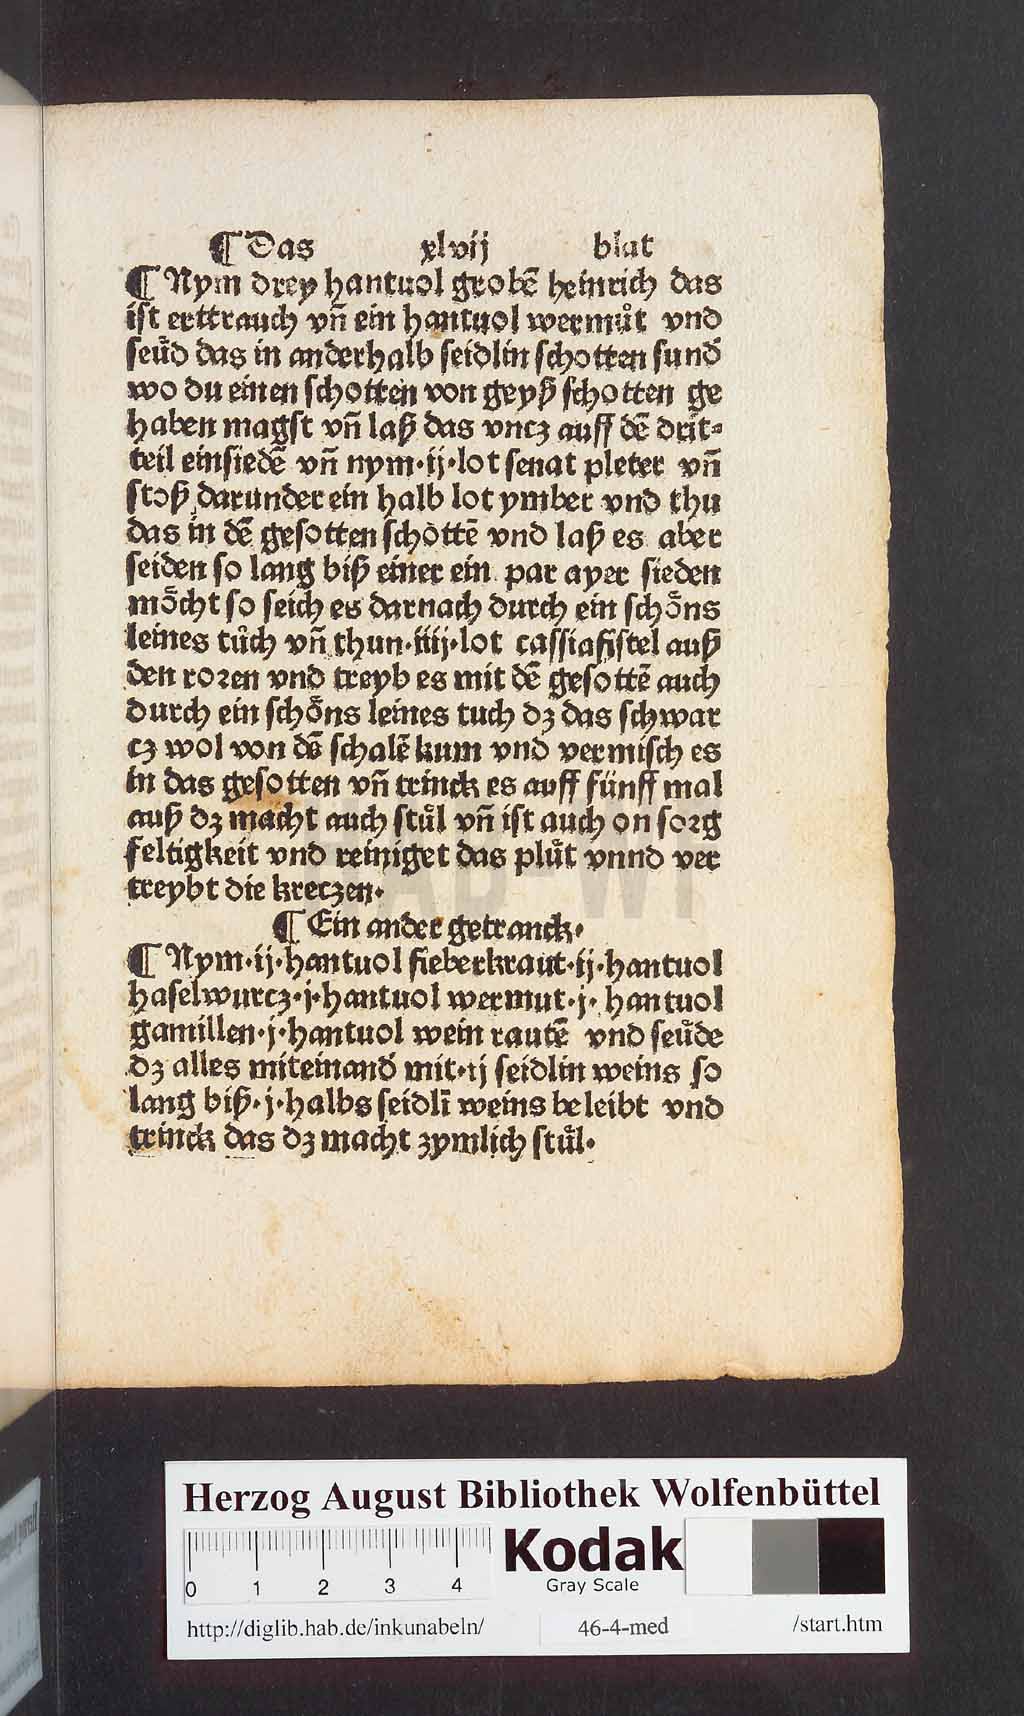 ¶ Das xlvij blat
¶ Nym drey hantuol grobē heinrich das
ist erttrauch vñ ein hantuol wermuͦt vnd
seuͤd das in anderhalb seidlin schotten sund̓
wo du einen schotten von geyß schotten ge
haben magst vñ laß das vncz auff dē drit⸗
teil einsiedē vñ nym·ij·lot senat pleter vñ
stoß darunder ein halb lot ymber vnd thu
das in dē gesotten schottē vnd laß es aber
seiden so lang biß einer ein par ayer sieden
moͤcht so seich es darnach durch ein schoͤns
leines tuͦch vñ thun·iiij·lot cassiafistel auß
den roꝛen vnd treyb es mit dē gesottē auch
durch ein schoͤns leines tuch dz das schwar
cz wol von dē schalē kum vnd vermisch es
in das gesotten vñ trinck es auff fünff mal
auß dz macht auch stuͤl vñ ist auch on soꝛg
feltigkeit vnd reiniget das pluͤt vnnd ver
treybt die kreczen·
¶ Ein ander getranck·
¶ Nym·ij·hantuol fieberkraut·ij·hantuol
haselwurcz·j·hantuol wermut·j· hantuol
gamillen·j·hantuol wein rautē vnd seuͤde
dz alles miteinand̓ mit·ij seidlin weins so
lang biß·j·halbs seidlī weins beleibt vnd
trinck das dz macht zymlich stuͤl·
HAB-WF
Herzog August Bibliothek Wolfenbüttel
0 1 2 3 4
Kodak
Gray Scale
http://diglib.hab.de/inkunabeln/ 46-4-med /start.htm